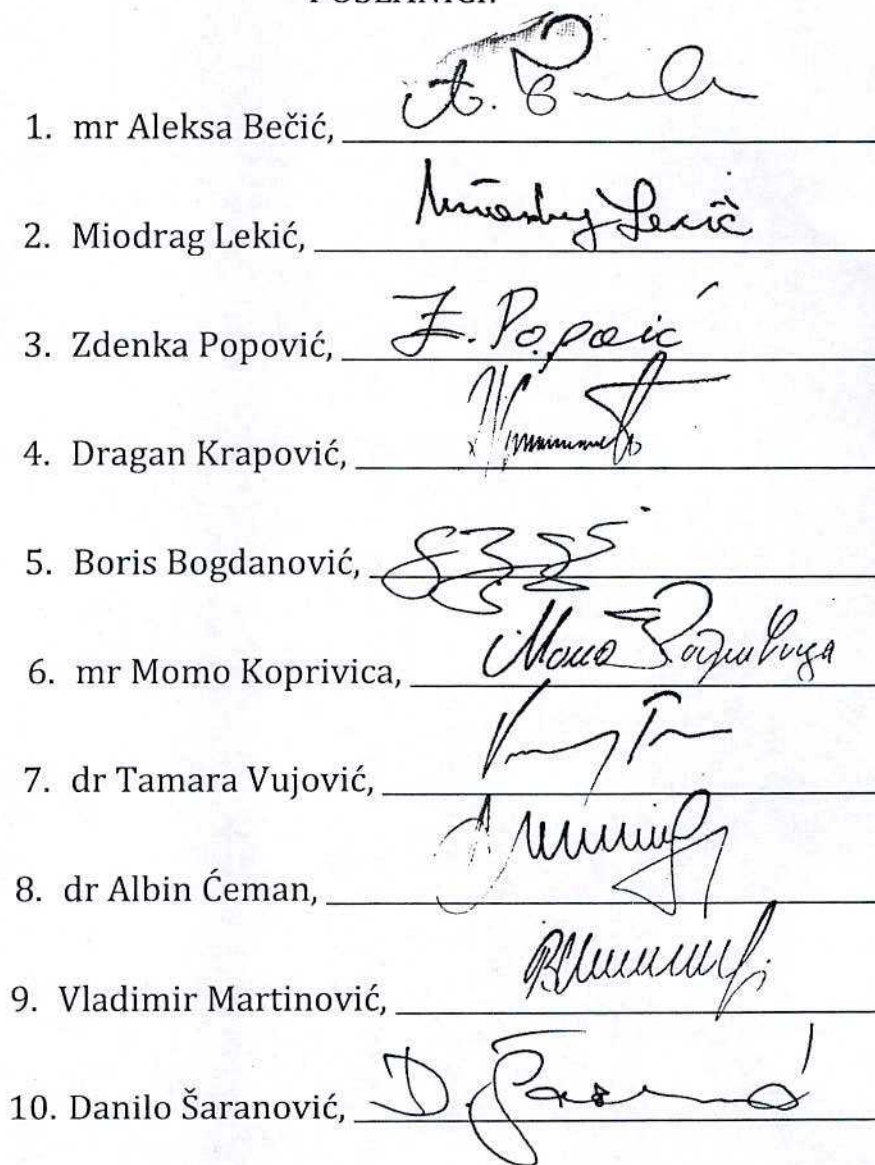 POSLANICI:
1. mr Aleksa Bečić,
2. Miodrag Lekić, Miodrag Lekić
3. Zdenka Popović, Z. Popović
4. Dragan Krapović,
5. Boris Bogdanović,
6. mr Momo Koprivica, Момо Копривица
7. dr Tamara Vujović,
8. dr Albin Ćeman,
9. Vladimir Martinović,
10. Danilo Šaranović,